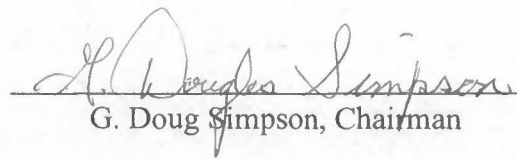 G. Douglas Simpson
G. Doug Simpson, Chairman